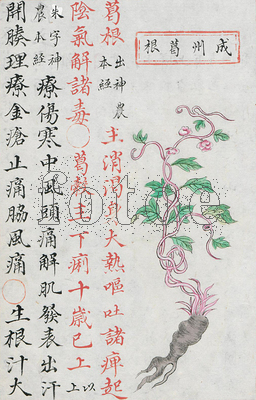 成州葛根
葛根出神農本經主消渇身大熱嘔吐諸痺起
陰氣解諸毒葛穀主下痢十歲已上以上
朱字神農本經療傷寒中風頭痛解肌發表出汗
開腠理療金瘡止痛脇風痛生根汁大